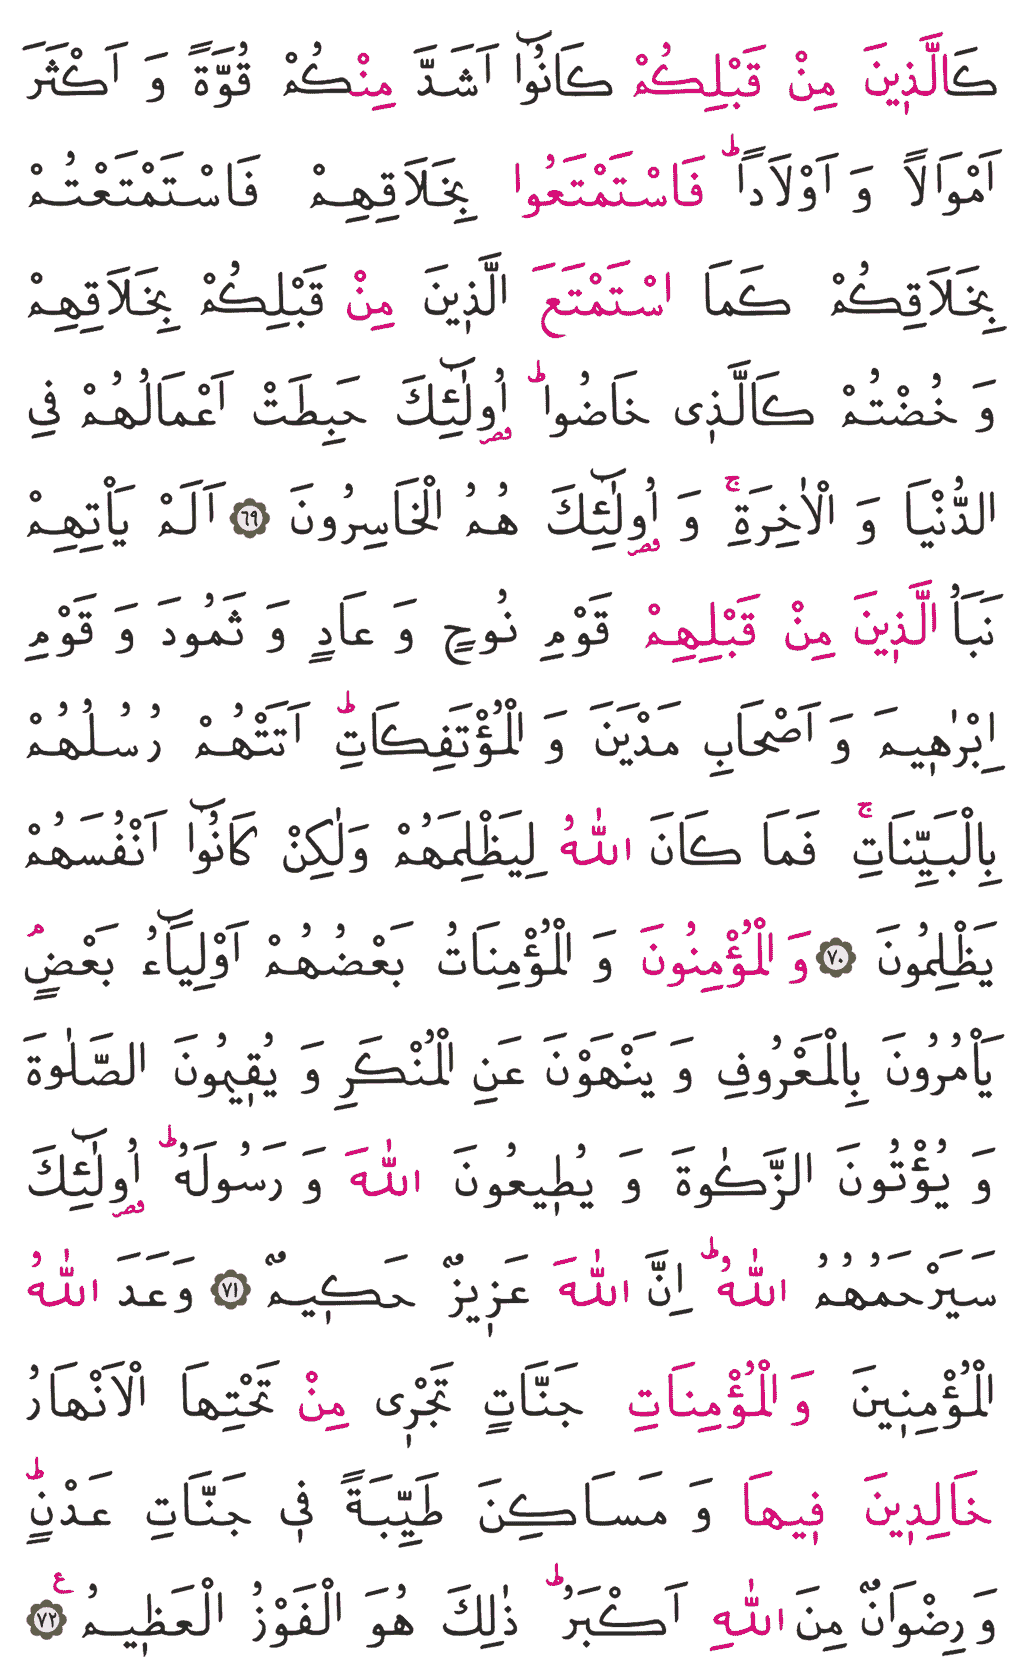 كَالَّذ۪ينَ مِنْ قَبْلِكُمْ كَانُٓوا اَشَدَّ مِنْكُمْ قُوَّةً وَ اَكْثَرَ
اَمْوَالًا وَ اَوْلَادًاۜ فَاسْتَمْتَعُوا بِخَلَاقِهِمْ فَاسْتَمْتَعْتُمْ
بِخَلَاقِكُمْ كَمَا اسْتَمْتَعَ الَّذ۪ينَ مِنْ قَبْلِكُمْ بِخَلَاقِهِمْ
وَ خُضْتُمْ كَالَّذ۪ى خَاضُواۜ اُو۬لٰٓئِكَ حَبِطَتْ اَعْمَالُهُمْ فِى
الدُّنْيَا وَ الْاٰخِرَةِۚ وَ اُو۬لٰٓئِكَ هُمُ الْخَاسِرُونَ ﴿٦٩﴾ اَلَمْ يَاْتِهِمْ
نَبَاُ الَّذ۪ينَ مِنْ قَبْلِهِمْ قَوْمِ نُوحٍ وَ عَادٍ وَ ثَمُودَ وَ قَوْمِ
اِبْرٰه۪يمَ وَ اَصْحَابِ مَدْيَنَ وَ الْمُؤْتَفِكَاتِۜ اَتَتْهُمْ رُسُلُهُمْ
بِالْبَيِّنَاتِۚ فَمَا كَانَ اللّٰهُ لِيَظْلِمَهُمْ وَلٰكِنْ كَانُٓوا اَنْفُسَهُمْ
يَظْلِمُونَ ﴿٧٠﴾ وَ الْمُؤْمِنُونَ وَ الْمُؤْمِنَاتُ بَعْضُهُمْ اَوْلِيَٓاءُ بَعْضٍۢ
يَاْمُرُونَ بِالْمَعْرُوفِ وَ يَنْهَوْنَ عَنِ الْمُنْكَرِ وَ يُق۪يمُونَ الصَّلٰوةَ
وَ يُؤْتُونَ الزَّكٰوةَ وَ يُط۪يعُونَ اللّٰهَ وَ رَسُولَهُۜ اُو۬لٰٓئِكَ
سَيَرْحَمُهُمُ اللّٰهُۜ اِنَّ اللّٰهَ عَز۪يزٌ حَك۪يمٌ ﴿٧١﴾ وَعَدَ اللّٰهُ
الْمُؤْمِن۪ينَ وَ الْمُؤْمِنَاتِ جَنَّاتٍ تَجْر۪ى مِنْ تَحْتِهَا الْاَنْهَارُ
خَالِد۪ينَ ف۪يهَا وَ مَسَاكِنَ طَيِّبَةً ف۪ى جَنَّاتِ عَدْنٍۜ
وَ رِضْوَانٌ مِنَ اللّٰهِ اَكْبَرُۜ ذٰلِكَ هُوَ الْفَوْزُ الْعَظ۪يمُ ﴿٧٢﴾ ع